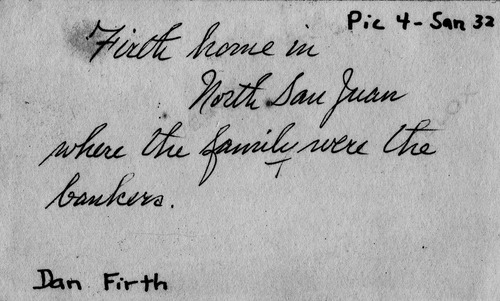 Pic 4 - San 32
Firth home in
North San Juan
where the family were the
bankers.
Dan Firth